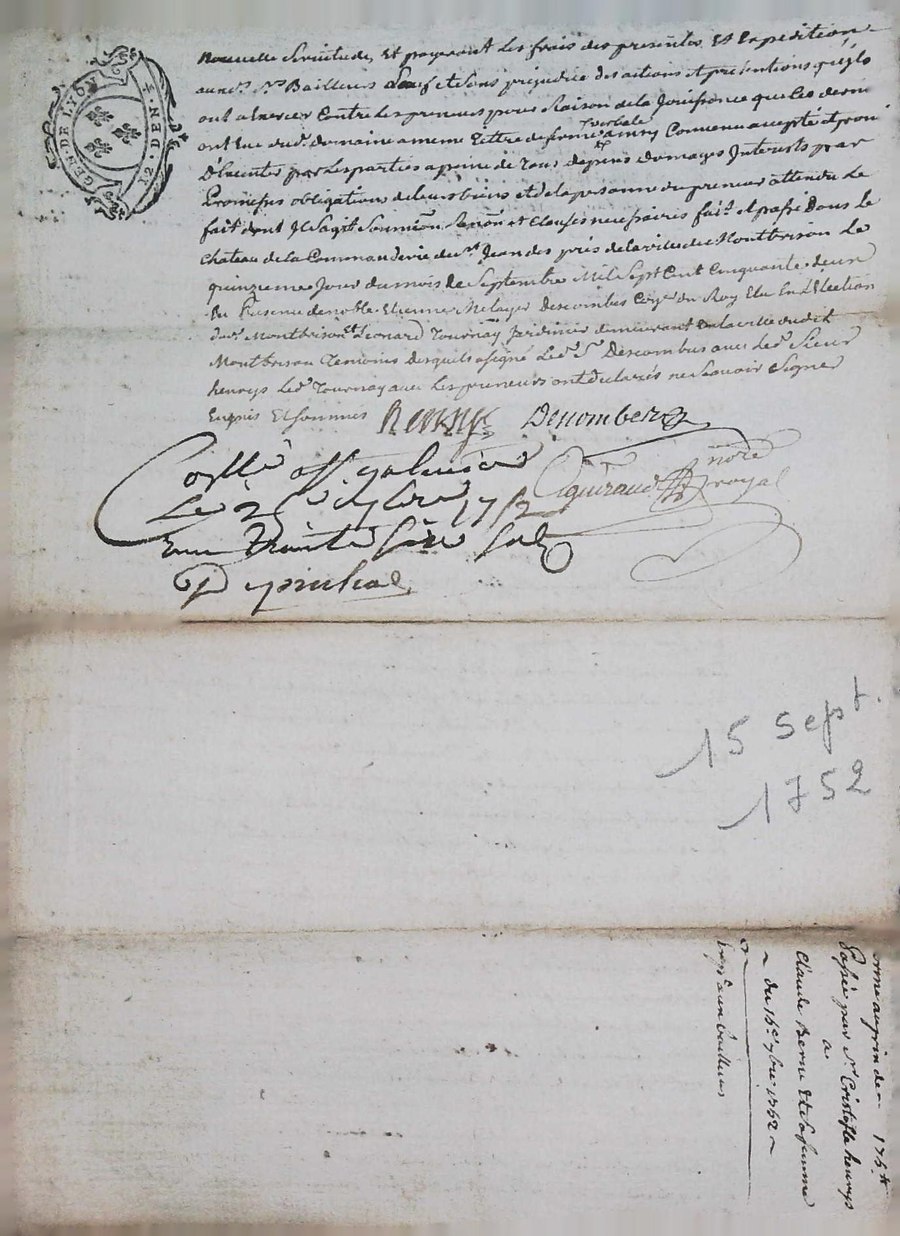 GEN. DE LYON
12. DEN. 4
nouvelle servitude, Et payeront Les frais des presentes Et Expedition
aud. Sr. Bailleurs Sauf et Sans prejudice des actions et pretentions qu'ils
ont a Exercer Contre Les preneurs pour Raison de la Jouissance que Ces derniers
ont Eue dud. Domaine a meme tittre de ferme verbale ainsy Convenu accepté et promis
D'Executer par Les parties a peine de tous depens Domages Interests par
Promesses obligation de leurs biens et de la personne du preneur attendu Le
fait dont Il Sagit Soumiõn Renõn et Clauses necessaires fait et passé Dans le
Chateau de la Commanderie de St Jean des prés de la ville de Montbrison Le
quinzieme Jour du mois de Septembre Mil Sept Cent Cinquante deux
En Presence de noble Etienne Melayer Descombes Coner. du Roy Elu En L'Election
dud. Montbrison et Leonard Tournay Jardinier demeurant En la ville dudit
Montbrison Temoins desquels a signé Led. Sr. Descombes avec Led. Sieur
henrys Led. Tournay avec Les preneurs ont declarés ne Scavoir Signer
Enquis Et Sommés henrys Descombes
notre royal
Le 1752
15 sept.
1752
Passée par Sr. Cristofle henrys
a
Claude Berne Et Sa femme
du 15e. 7bre 1752